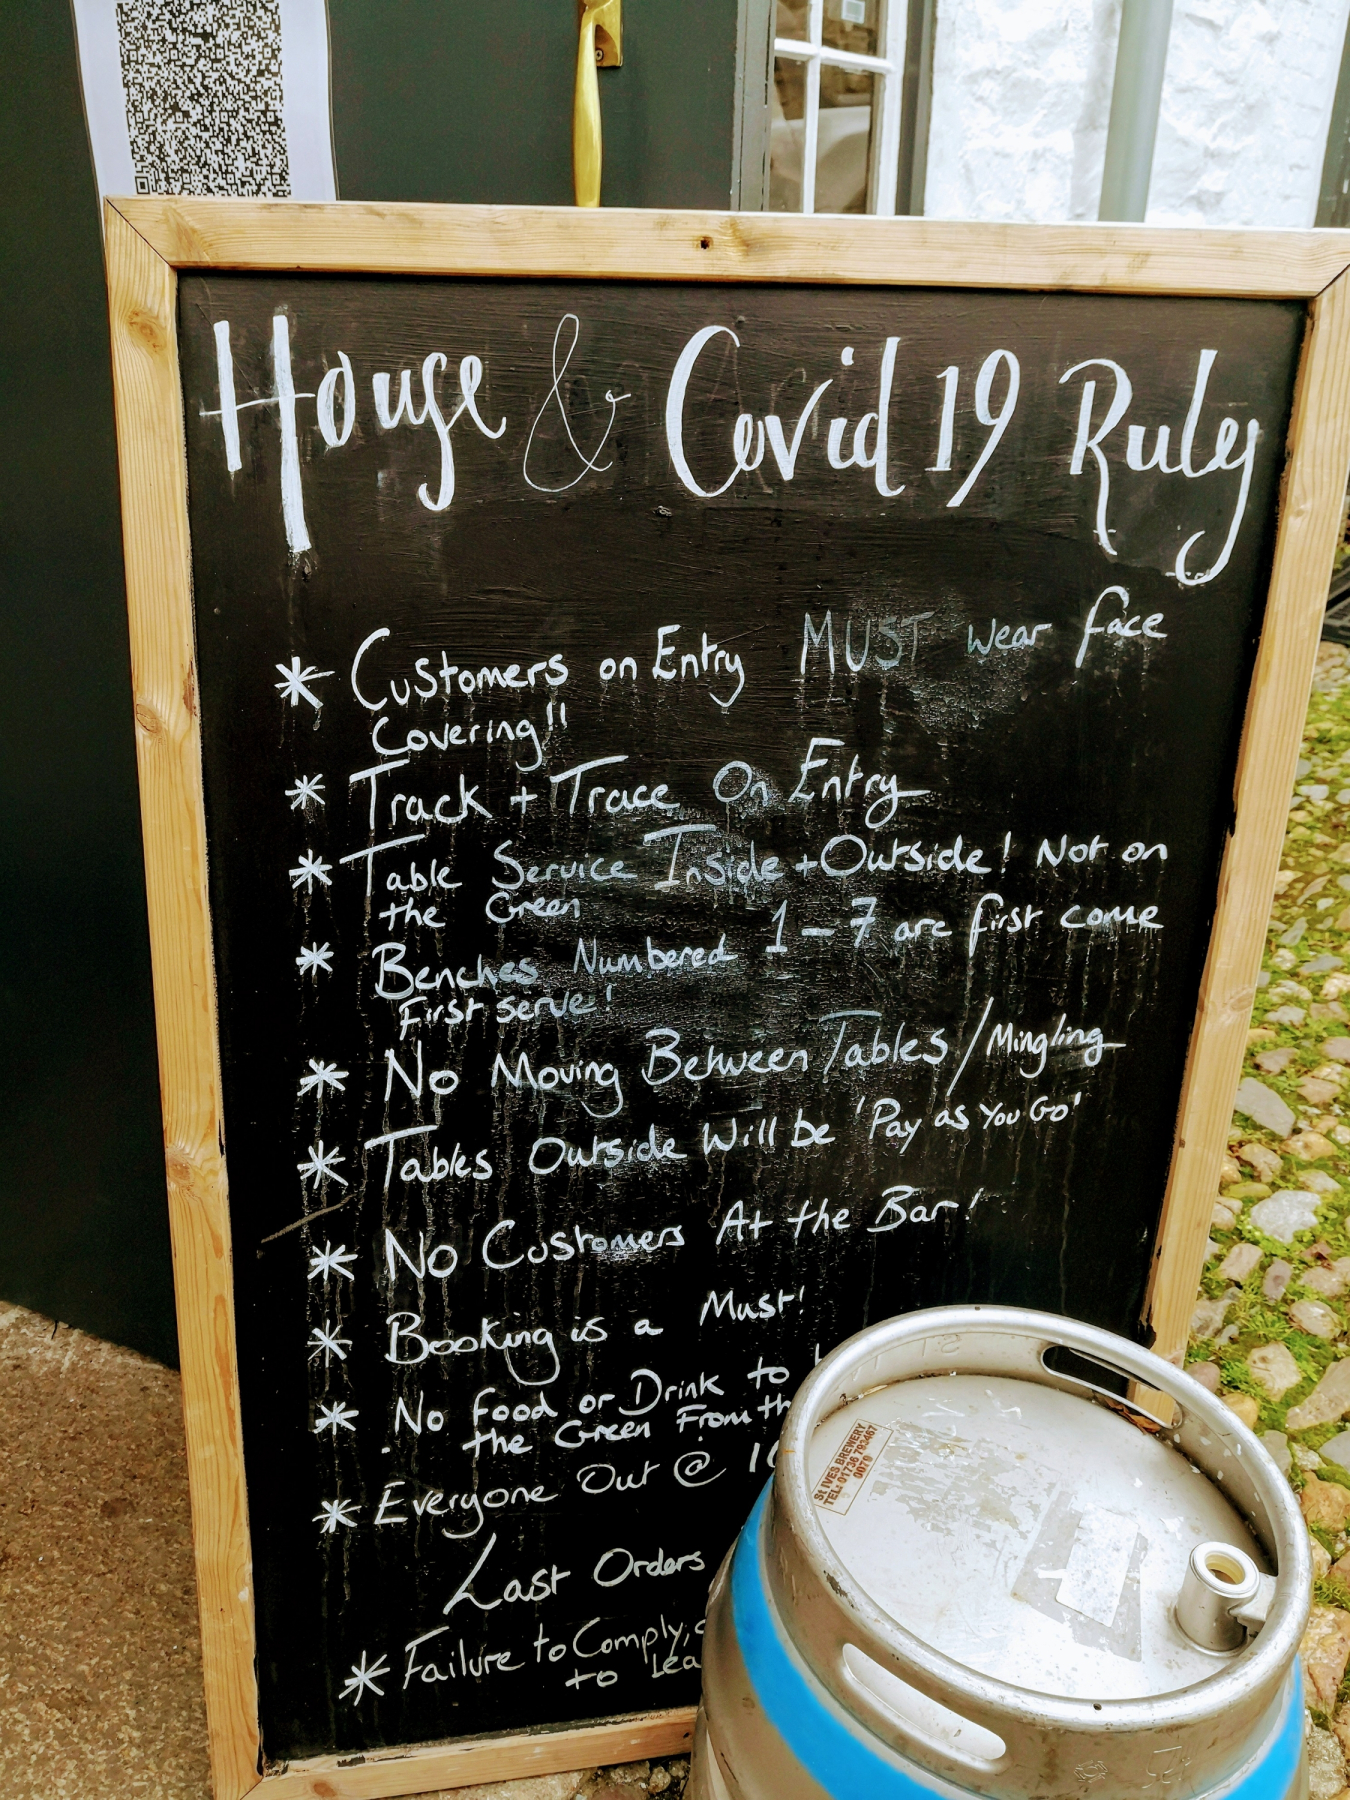 House & Covid 19 Rules
* Customers on Entry MUST wear face
Covering!!
* Track + Trace On Entry
* Table Service Inside + Outside! Not on
the Green
* Benches Numbered 1 – 7 are first come
First serve!
* No Moving Between Tables / Mingling
* Tables Outside Will be 'Pay as You Go'
* No Customers At the Bar!
* Booking is a Must!
* No Food or Drink to
the Green From
* Everyone Out @
Last Orders
* Failure to Comply,
to
St IVES BREWERY
TEL: 01736 793467
0079